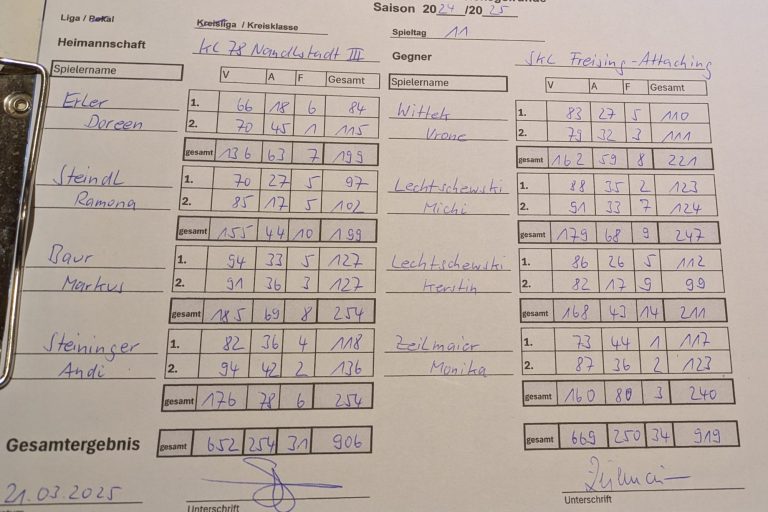 Saison 2024/2025
Liga / Pokal Kreisliga / Kreisklasse Spieltag 11
Heimannschaft KC 78 Nandlstadt III Gegner SKC Freising-Attaching
Spielername V A F Gesamt Spielername V A F Gesamt
Erler 1. 66 18 6 84 Wittek 1. 83 27 5 110
Doreen 2. 70 45 1 115 Vrone 2. 79 32 3 111
gesamt 136 63 7 199 gesamt 162 59 8 221
Steindl 1. 70 27 5 97 Lechtschewski 1. 88 35 2 123
Ramona 2. 85 17 5 102 Michi 2. 91 33 7 124
gesamt 155 44 10 199 gesamt 179 68 9 247
Baur 1. 94 33 5 127 Lechtschewski 1. 86 26 5 112
Markus 2. 91 36 3 127 Kerstin 2. 82 17 9 99
gesamt 185 69 8 254 gesamt 168 43 14 211
Steininger 1. 82 36 4 118 Zeilmaier 1. 73 44 1 117
Andi 2. 94 42 2 136 Monika 2. 87 36 2 123
gesamt 176 78 6 254 gesamt 160 80 3 240
Gesamtergebnis gesamt 652 254 31 906 gesamt 669 250 34 919
21.03.2025
Unterschrift Unterschrift